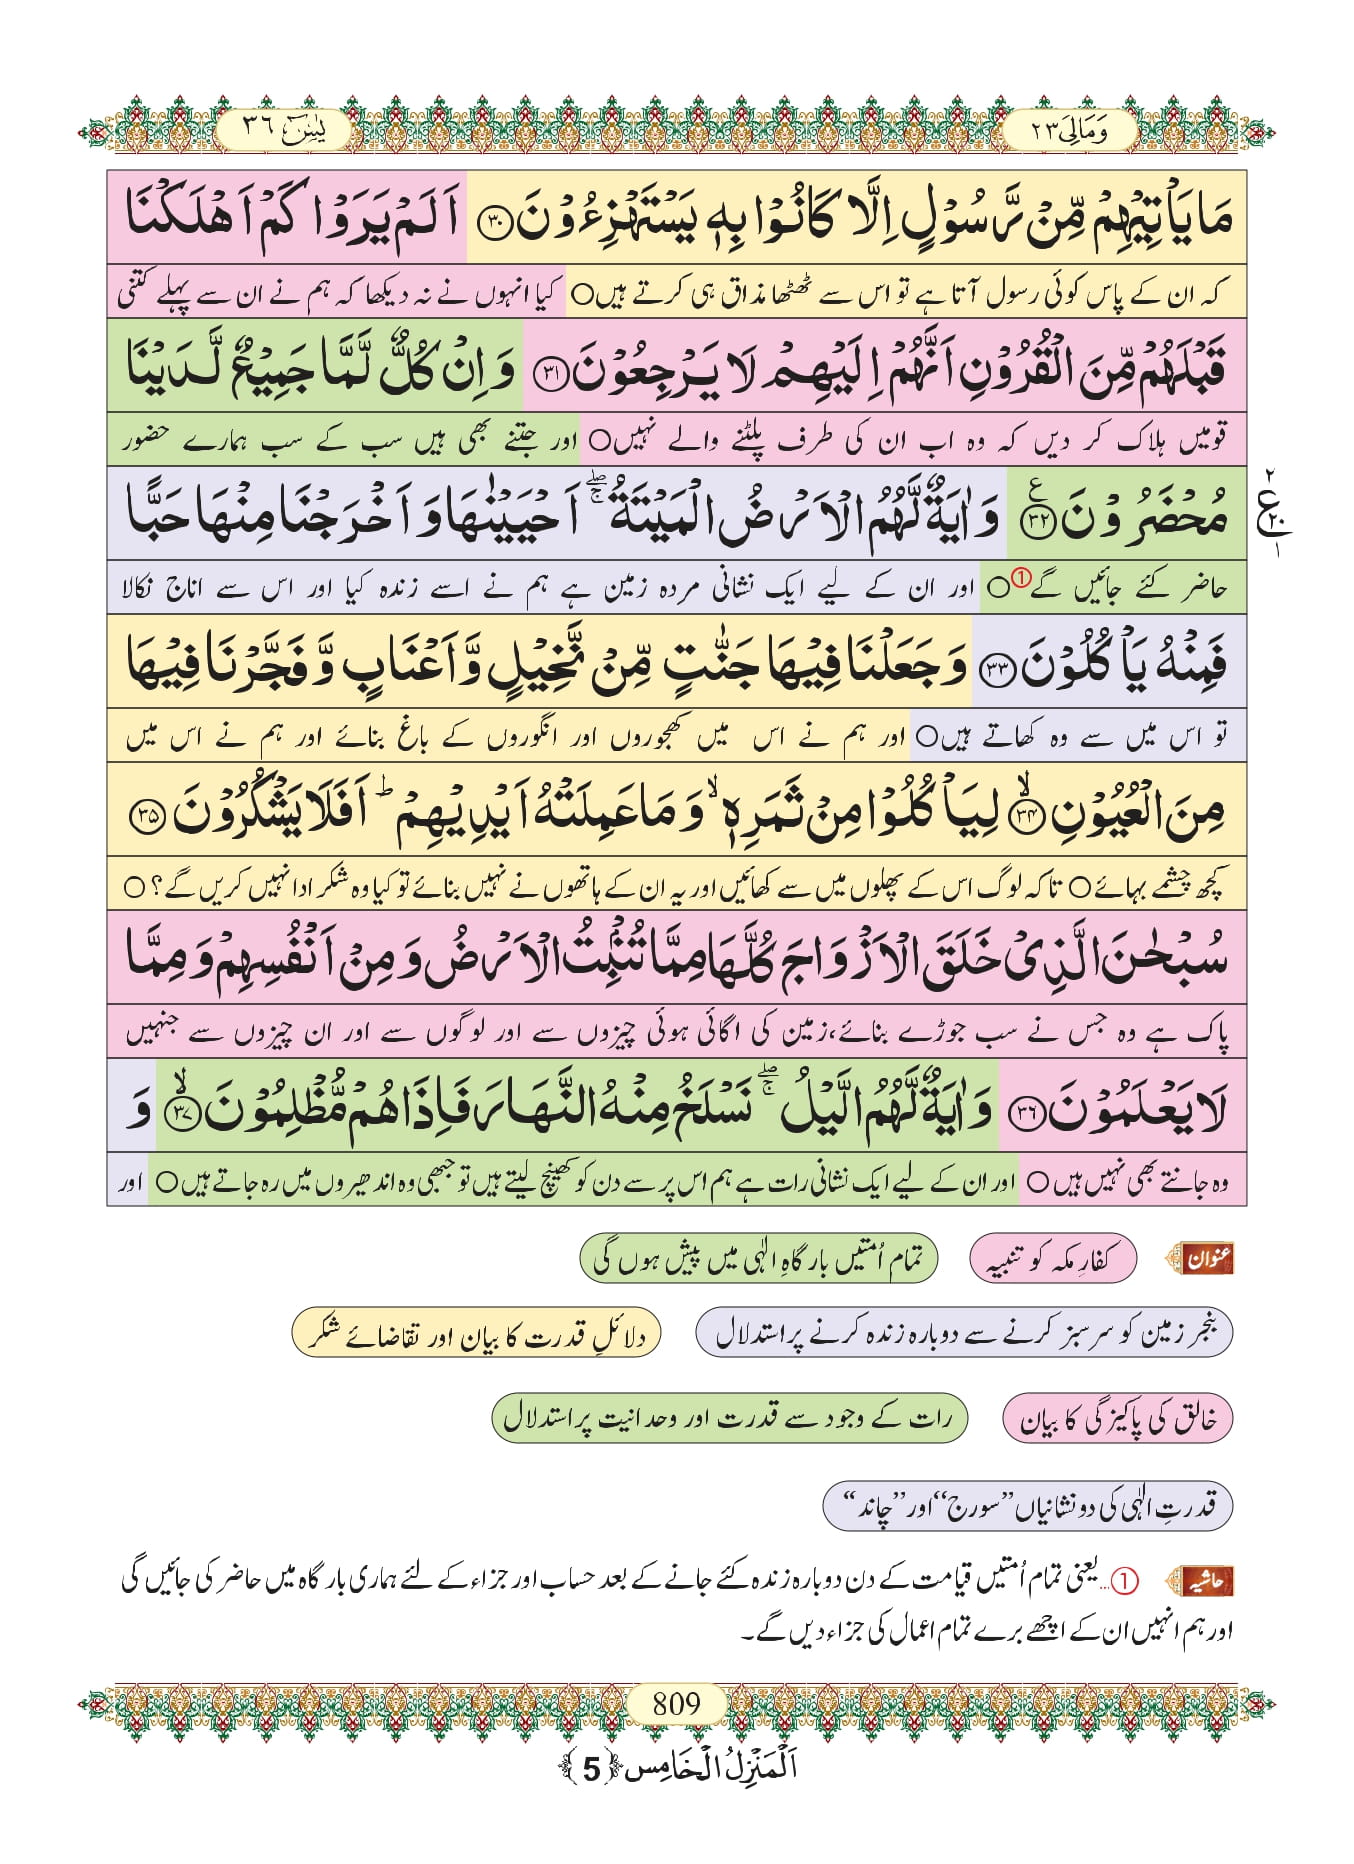 وَمَالِیَ ۲۳
یٰسٓ ۳۶
مَا یَاْتِیْهِمْ مِّنْ رَّسُوْلٍ اِلَّا كَانُوْا بِهٖ یَسْتَهْزِءُوْنَ ﴿۳۰﴾ اَلَمْ یَرَوْا كَمْ اَهْلَكْنَا
کہ ان کے پاس کوئی رسول آتا ہے تو اس سے ٹھٹھا مذاق ہی کرتے ہیں○ کیا انہوں نے نہ دیکھا کہ ہم نے ان سے پہلے کتنی
قَبْلَهُمْ مِّنَ الْقُرُوْنِ اَنَّهُمْ اِلَیْهِمْ لَا یَرْجِعُوْنَ ﴿۳۱﴾ وَ اِنْ كُلٌّ لَّمَّا جَمِیْعٌ لَّدَیْنَا
قومیں ہلاک کر دیں کہ وہ اب ان کی طرف پلٹنے والے نہیں○ اور جتنے بھی ہیں سب کے سب ہمارے حضور
مُحْضَرُوْنَ ﴿۳۲﴾ ع وَ اٰیَةٌ لَّهُمُ الْاَرْضُ الْمَیْتَةُ ۖۚ اَحْیَیْنٰهَا وَ اَخْرَجْنَا مِنْهَا حَبًّا
۲ ع ۲۰ ۱
حاضر کئے جائیں گے①○ اور ان کے لیے ایک نشانی مردہ زمین ہے ہم نے اسے زندہ کیا اور اس سے اناج نکالا
فَمِنْهُ یَاْكُلُوْنَ ﴿۳۳﴾ وَ جَعَلْنَا فِیْهَا جَنّٰتٍ مِّنْ نَّخِیْلٍ وَّ اَعْنَابٍ وَّ فَجَّرْنَا فِیْهَا
تو اس میں سے وہ کھاتے ہیں○ اور ہم نے اس میں کھجوروں اور انگوروں کے باغ بنائے اور ہم نے اس میں
مِنَ الْعُیُوْنِ ﴿۳۴﴾ۙ لِیَاْكُلُوْا مِنْ ثَمَرِهٖ ۙ وَ مَا عَمِلَتْهُ اَیْدِیْهِمْ ؕ اَفَلَا یَشْكُرُوْنَ ﴿۳۵﴾
کچھ چشمے بہائے○ تاکہ لوگ اس کے پھلوں میں سے کھائیں اور یہ ان کے ہاتھوں نے نہیں بنائے تو کیا وہ شکر ادا نہیں کریں گے؟○
سُبْحٰنَ الَّذِیْ خَلَقَ الْاَزْوَاجَ كُلَّهَا مِمَّا تُنْۢبِتُ الْاَرْضُ وَ مِنْ اَنْفُسِهِمْ وَ مِمَّا
پاک ہے وہ جس نے سب جوڑے بنائے،زمین کی اگائی ہوئی چیزوں سے اور لوگوں سے اور ان چیزوں سے جنہیں
لَا یَعْلَمُوْنَ ﴿۳۶﴾ وَ اٰیَةٌ لَّهُمُ الَّیْلُ ۖۚ نَسْلَخُ مِنْهُ النَّهَارَ فَاِذَا هُمْ مُّظْلِمُوْنَ ﴿۳۷﴾ۙ وَ
وہ جانتے بھی نہیں ہیں○ اور ان کے لیے ایک نشانی رات ہے ہم اس پر سے دن کو کھینچ لیتے ہیں تو جبھی وہ اندھیروں میں رہ جاتے ہیں○ اور
عنوان کفارِ مکہ کو تنبیہ تمام اُمتیں بارگاہِ الٰہی میں پیش ہوں گی
بنجر زمین کو سرسبز کرنے سے دوبارہ زندہ کرنے پر استدلال دلائلِ قدرت کا بیان اور تقاضائے شکر
خالق کی پاکیزگی کا بیان رات کے وجود سے قدرت اور وحدانیت پر استدلال
قدرتِ الٰہی کی دو نشانیاں ’’سورج‘‘ اور ’’چاند‘‘
حاشیہ ①...یعنی تمام اُمتیں قیامت کے دن دوبارہ زندہ کئے جانے کے بعد حساب اور جزاء کے لئے ہماری بارگاہ میں حاضر کی جائیں گی
اور ہم انہیں ان کے اچھے برے تمام اعمال کی جزاء دیں گے۔
809
اَلْمَنْزِلُ الْخَامِس ﴿5﴾